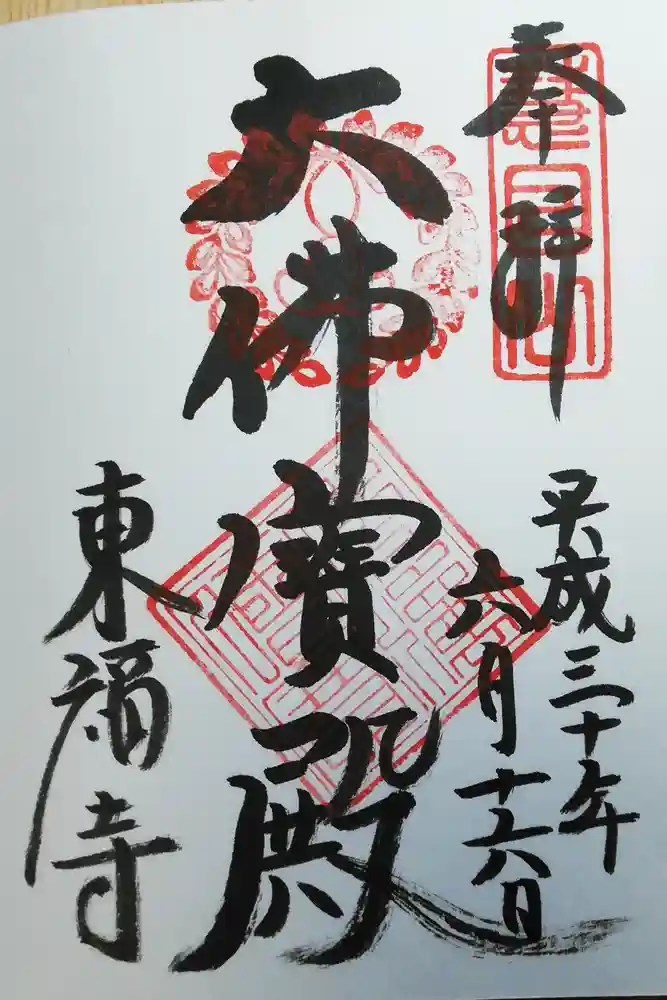 奉拝
平成三十年
六月十六日
大佛寳殿
東福寺